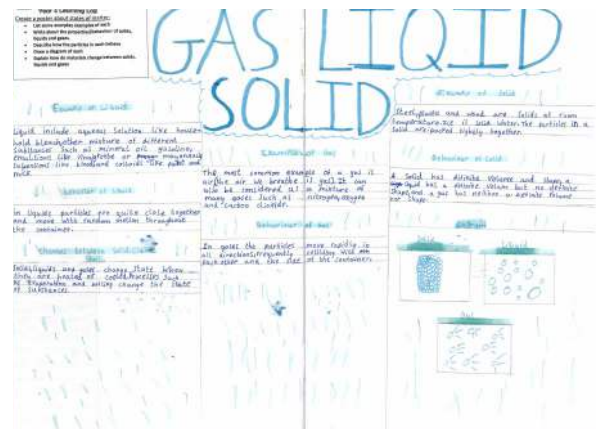 Create a poster about states of matter:
Give some examples of each
Write about the properties/behaviour of solids,
liquids and gases
Describe how the particles in each behave
Draw a diagram of each
Explain how do materials change between solids,
liquids and gases
GAS LIQID
SOLID
Example of Liquid
Liquid include aqueous solution like house
hold bleach, other mixture of different
substances such as mineral oil gasoline,
emulsions like or mayonnaise
suspensions like blood and colloids like paint and
milk
Behavior of Liquid
in liquids particles are quite close together
and move with random motion throughout
the container.
Changes between solid
Solids, liquids and gases change state when
they are heated or cooled. Processes such
as evaporation and boiling change the state
of substances.
Example of Gas
The most common example of a gas is
air (the air we breathe is gas). It can
also be considered as a mixture of
many gases such as nitrogen, oxygen
and carbon dioxide.
Behaviour of Gas
In gases the particles move rapidly in
all directions, frequently colliding with
each other and the side of the container.
Example of Solid
and wood are solids at room
temperature. Ice is solid water. The particles in a
solid are packed tightly together.
Behaviour of Solid
A Solid has difinite volume and shape, a
liquid has a definite volum but no definite
shape, and a gas but neither a definite volume
nor shape.
Solid
Liquid
Gas